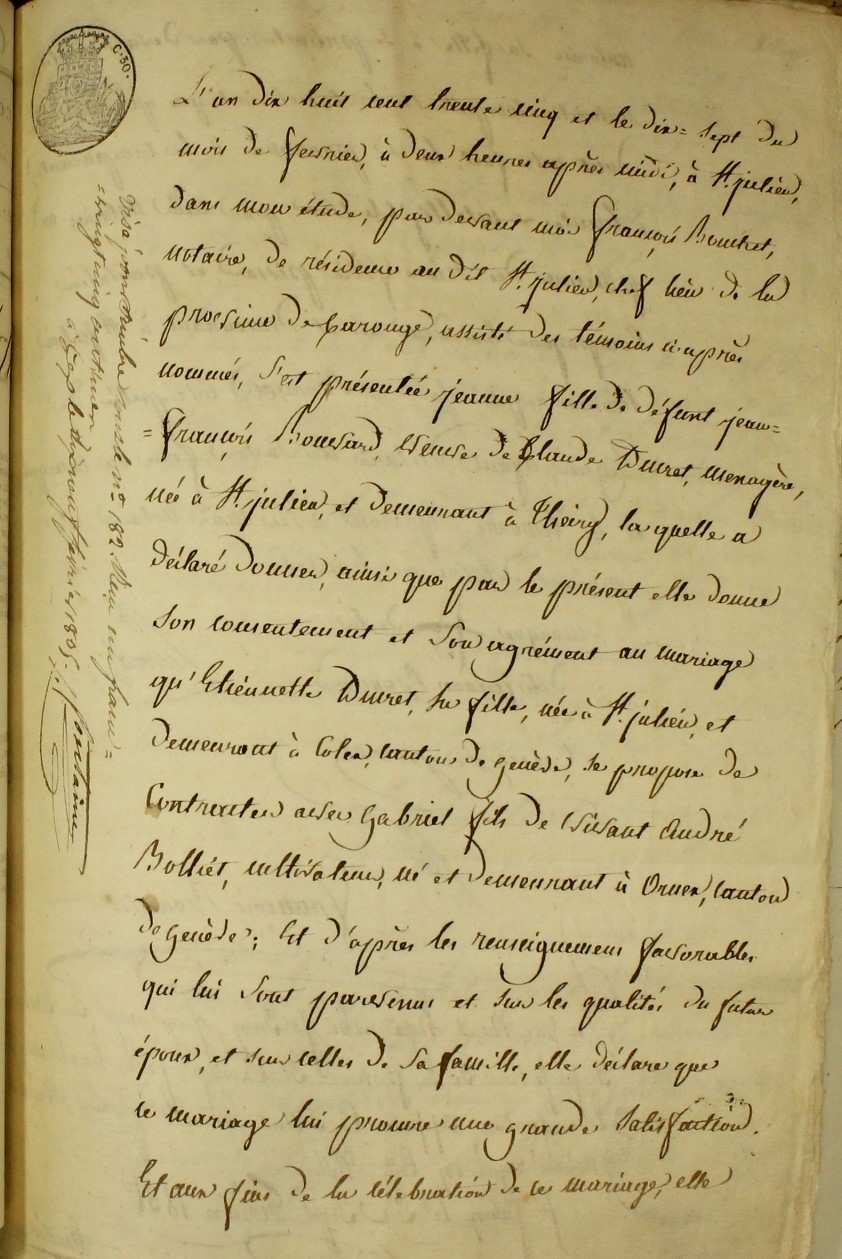 L'an dix huit cent trente cinq et le dix=sept du
mois de fevrier, à deux heures après midi, à St. julien,
dans mon étude, par devant moi françois Bouchet,
notaire, de résidence au dit St. julien, chef lieu de la
province de Carouge, assisté des témoins ci-après
nommés, s'est présentée jeanne fille de défunt jean=
=françois Bouvard, veuve de Claude Duret, menagère,
née à St. julien, et demeurant à Thairy, la quelle a
déclaré donner, ainsi que par le présent elle donne
son consentement et son agrément au mariage
qu'Etiennette Duret, sa fille, née à St. julien, et
demeurant à Colex, canton de genève, se propose de
Contracter avec Gabriel fils de vivant André
Bolliet, cultivateur, né et demeurant à Onex, canton
de genève; Et d'après les renseignemens favorables
qui lui sont parvenus et sur les qualités du futur
époux, et sur celles de sa famille, elle déclare que
ce mariage lui procure une grande satisfaction.
Et aux fins de la célébration de ce mariage, elle
C. 50.
Visa pour timbre sous le no. 182. Reçu un franc=
=vingt cinq centimes
le février 1835.